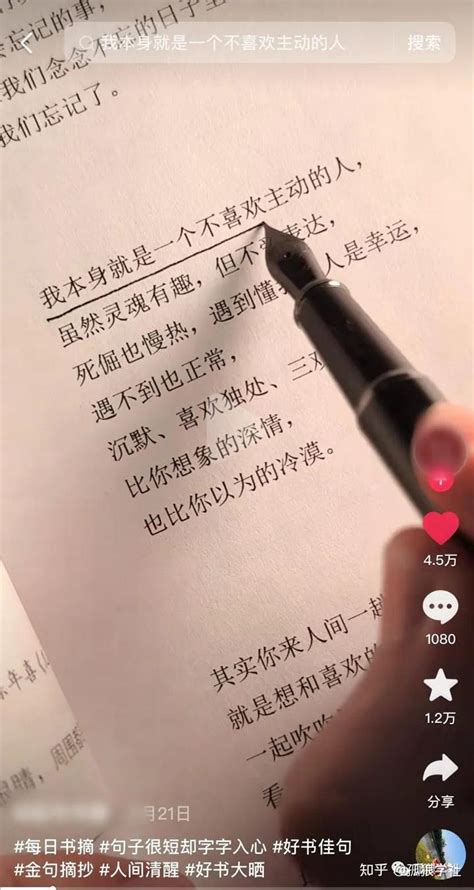 忘记的事，
我们念念不忘的日子里
我们忘记了。
我本身就是一个不喜欢主动的人
搜索
我本身就是一个不喜欢主动的人，
虽然灵魂有趣，但不 表达，
死倔也慢热，遇到懂 人是幸运，
遇不到也正常，
沉默、喜欢独处、三观
比你想象的深情，
也比你以为的冷漠。
其实你来人间一趟
就是想和喜欢的
一起吹吹
看
周围
4.5万
1080
1.2万
分享
月21日
#每日书摘 #句子很短却字字入心 #好书佳句
#金句摘抄 #人间清醒 #好书大晒
知乎 @孤狼学社